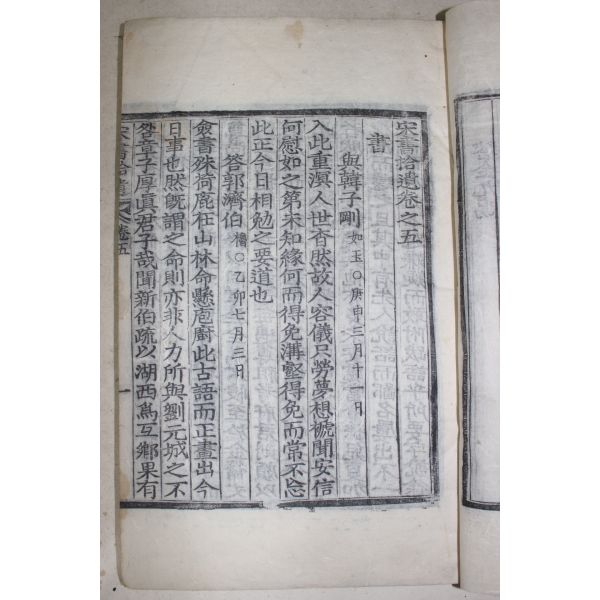 宋書拾遺卷之五
書
與韓子剛 如玉○庚申三月十一日
入此重溟人世杳然故人容儀只勞夢想褫聞安信
何慰如之第未知緣何而得免溝壑得免而常不忘
此正今日相勉之要道也
答郭濟伯 ○乙卯七月三日
僉書殊荷鹿在山林命懸庖廚此古語而正畫出今
日事也然旣謂之命則亦非人力所與劉元城之不
咎章子厚眞君子哉聞新伯疏以湖西爲互鄕果有
宋書拾遺 卷五 一